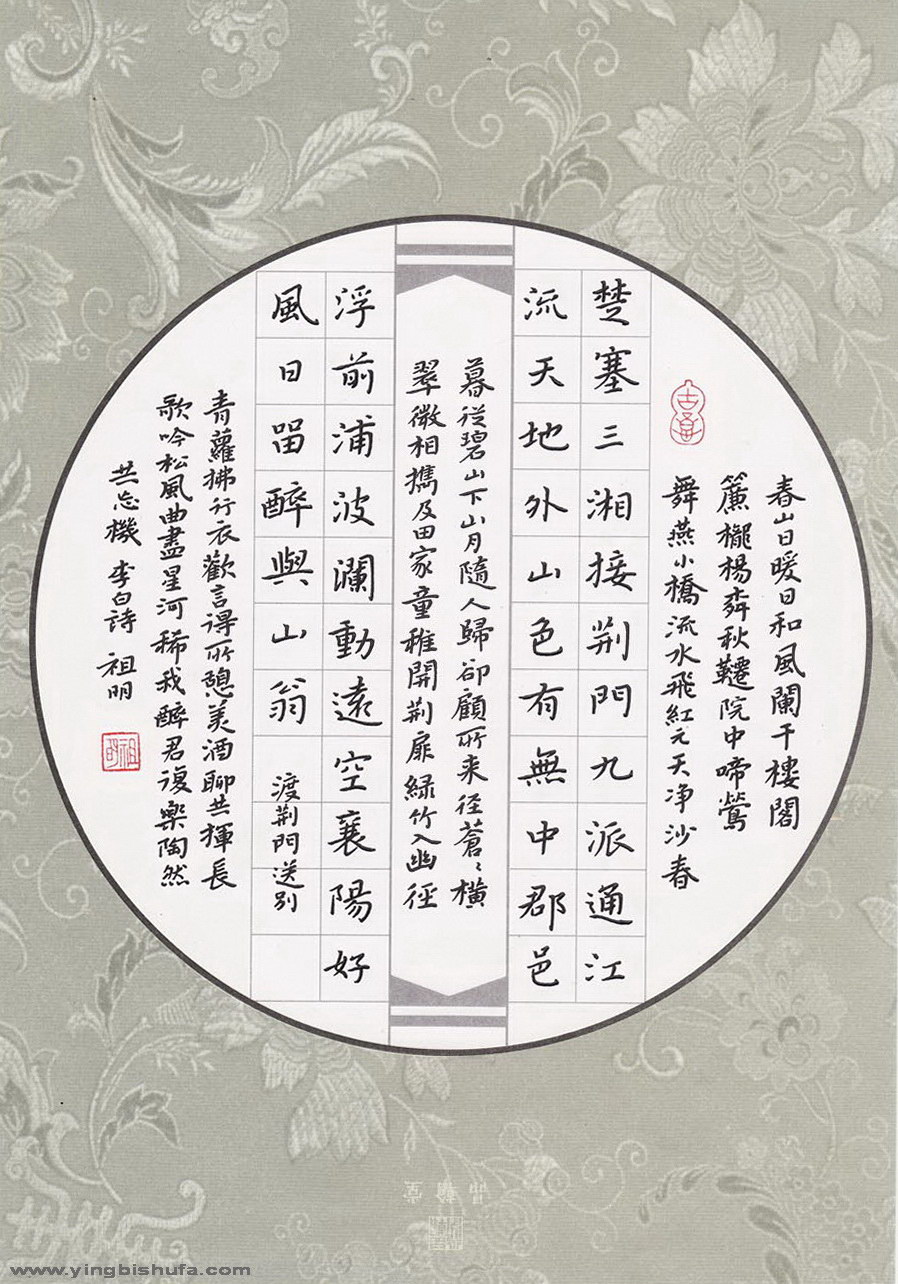 春山日暖日和風闌干樓閣
簾櫳楊桺秋韆院中啼鶯
舞燕小橋流水飛紅元天净沙春
楚塞三湘接荊門九派通江
流天地外山色有無中郡邑
暮從碧山下山月隨人歸卻顧所来徑蒼〻橫
翠微相攜及田家童稚開荊扉綠竹入幽徑
浮前浦波瀾動遠空襄陽好
風日畱醉與山翁 渡荊門送別
青蘿拂行衣歡言得所憩美酒聊共揮長
歌吟松風曲盡星河稀我醉君復樂陶然
共忘機 李白詩 祖明
祖明
品翰堂
www.yingbishufa.com